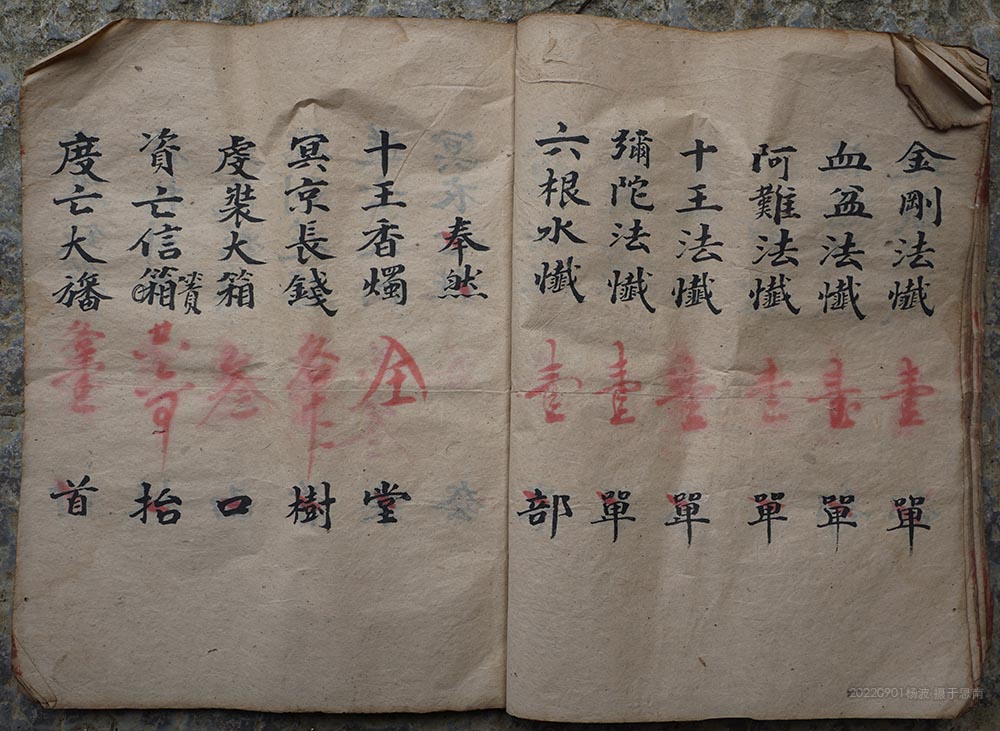 金剛法懺 壹 單
血盆法懺 壹 單
阿難法懺 壹 單
十王法懺 壹 單
彌陀法懺 壹 單
六根水懺 壹 部
奉然
十王香燭 全 堂
冥京長錢 樹
虔裝大箱 叁 口
資亡信箱 抬
度亡大旛 首
20220901杨波 摄于思南